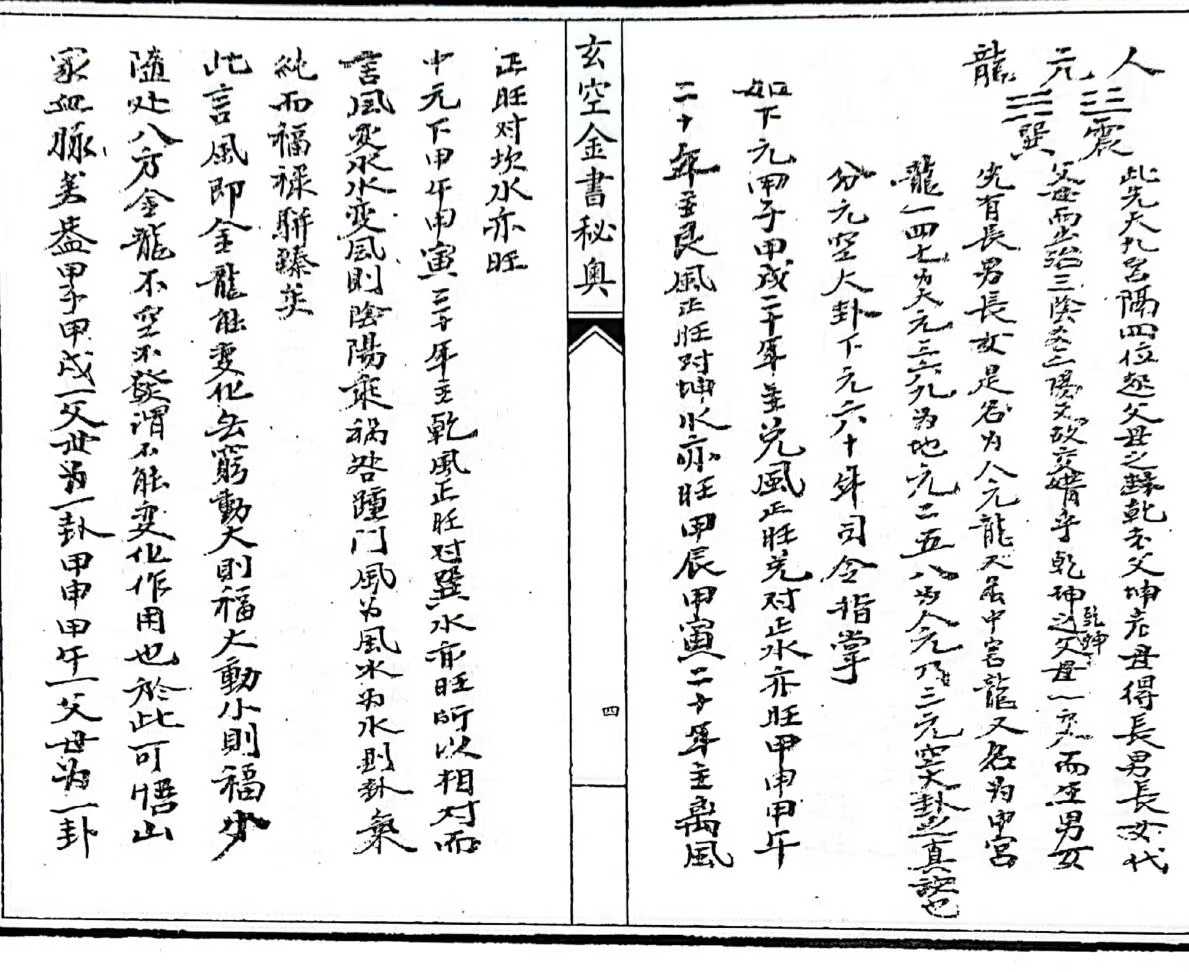 人元龍
震
巽
此先天九宮隔四位起父母之卦乾老父坤老母得長男長女代
父母而出治三陰三陽交故交媾乎乾坤乾坤之父母一交而生男女
先有長男長女是名為人元龍又居中宮龍又名為中宮
龍一四七為天元三六九為地元二五八為人元乃三元空大卦之真訣也
分元空大卦下元六十年司令指掌
如下元甲子甲戌二十年主兌風正旺兌对正水亦旺甲申甲午
二十年主艮風正旺对坤水亦旺甲辰甲寅二十年主离風
玄空金書秘奧
四
正旺对坎水亦旺
中元下甲午甲寅三十年主乾風正旺对巽水亦旺所以相对而
言風变水水变風則陰陽乘祸咎踵门風为風水为水則卦氣
純而福禄駢臻矣
此言風即金龍能变化无窮動大則福大動小則福少
隨处八方金龍不空不發谓不能变化作用也於此可悟山
家血脉矣盖甲子甲戌一父母为一卦甲申甲午一父母为一卦